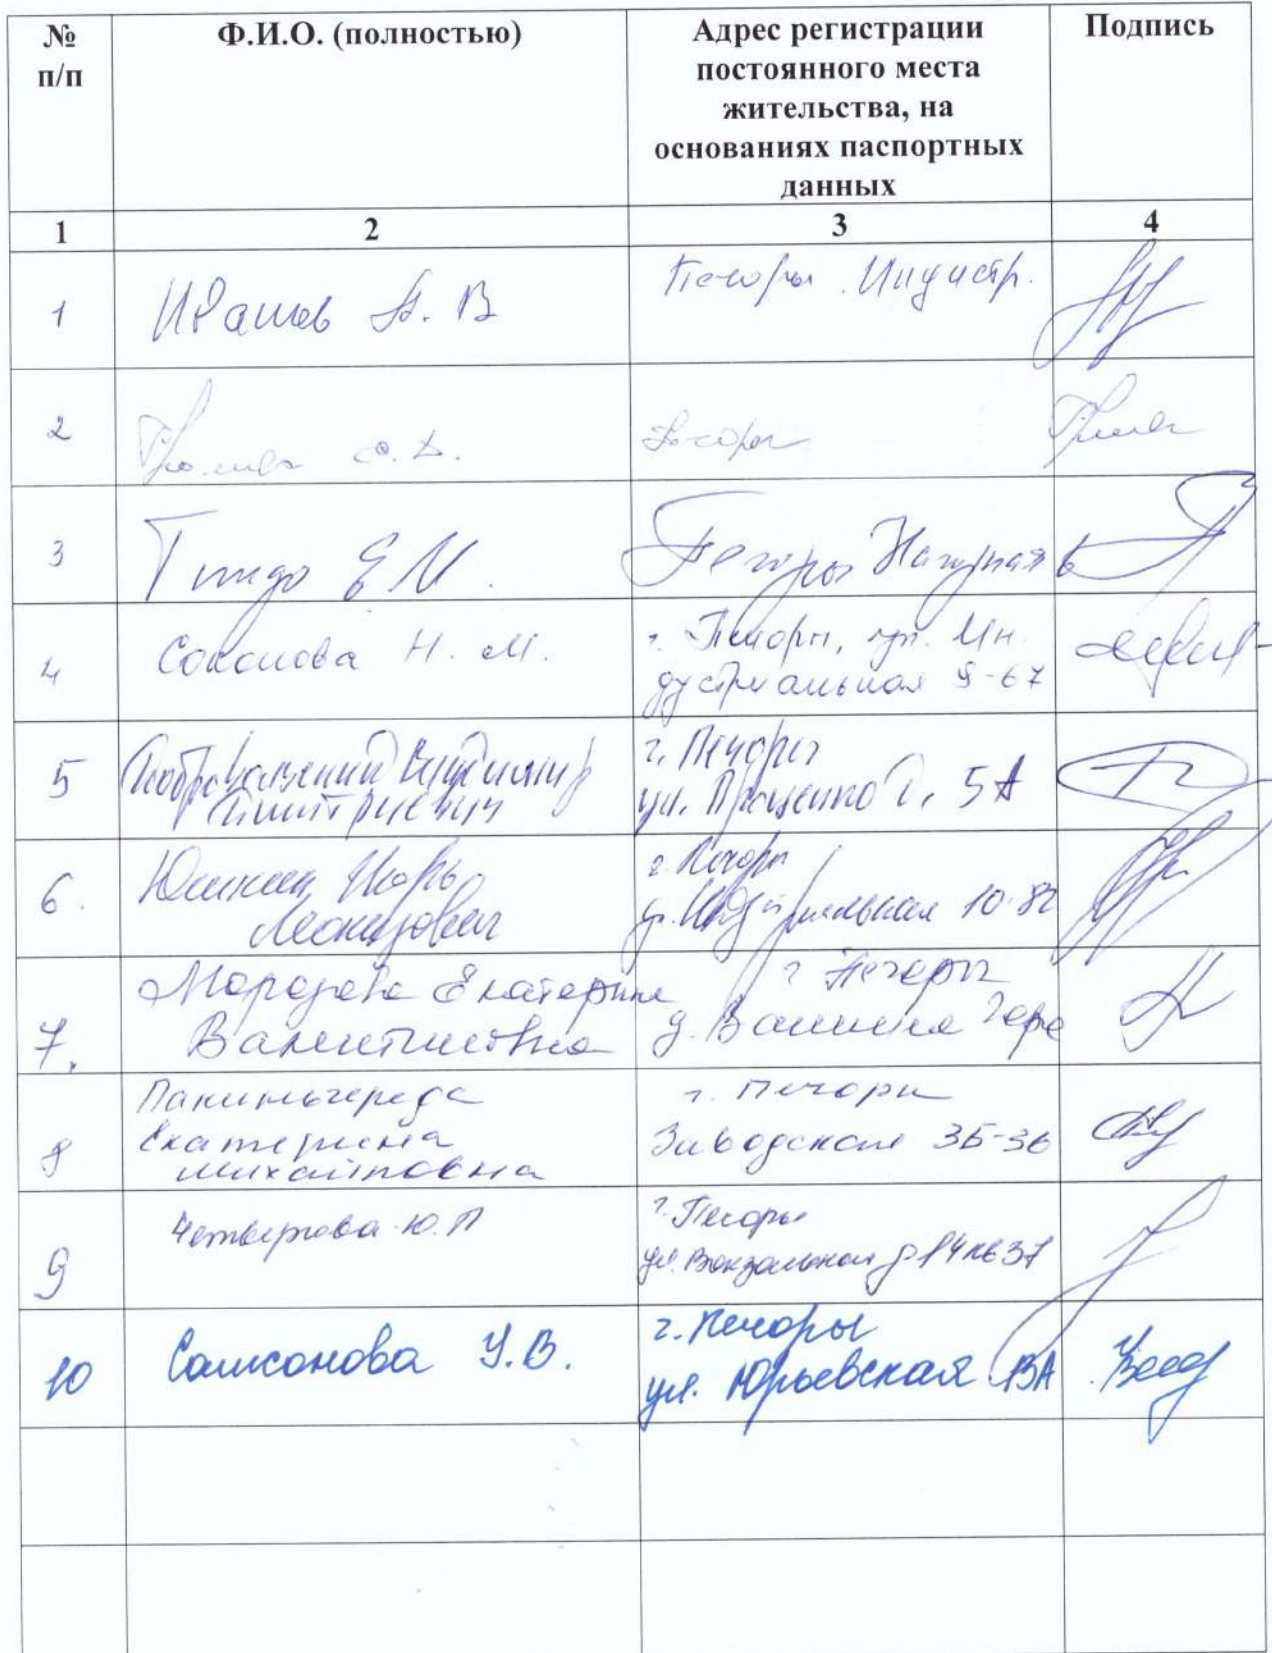 № п/п
Ф.И.О. (полностью)
Адрес регистрации
постоянного места
жительства, на
основаниях паспортных
данных
Подпись
1 2 3 4
1 Ивашов А. В Печоры Индустр.
2 С. Д. Печоры
3 Е М. Печоры Нагорная 6
4 Соколова Н. М. г. Печоры, ул. Ин
дустриальная 9-67
5 Владимир г. Печоры
Дмитриевич ул. Проценко д. 5А
6. Юшкин Игорь г. Печоры
Леонидович ул. Индустриальная 10-82
7. Морозова Екатерина г Печоры
Валентиновна д. Вашина Гора
8 Екатерина г. Печоры
Михайловна Заводская 3Б-36
9 Четвертова Ю. П г. Печоры
ул. Вокзальная д 14 кв 37
10 Самсонова У. В. г. Печоры
ул. Юрьевская 13А